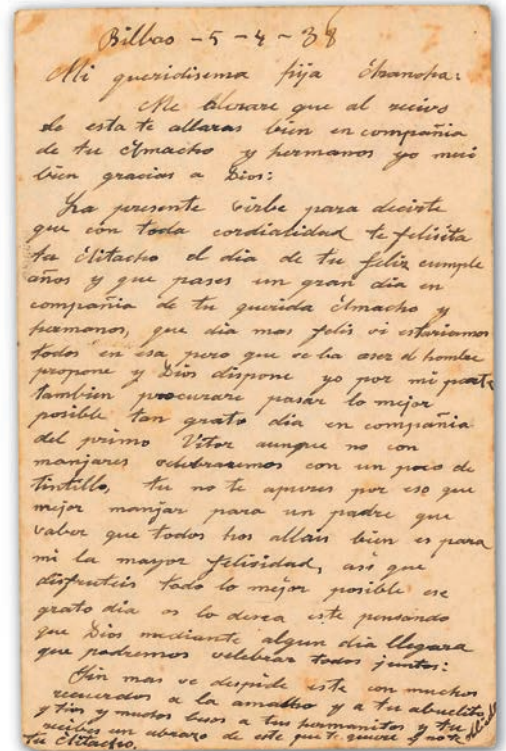 Bilbao - 5 - 4 - 38
Mi queridisema fija Chancha:
Me alerare que al recivo
de esta te allaras bien en compañia
de tu Amacho y hermanos yo mui
bien gracias a Dios:
La presente sirbe para decirte
que con toda cordialidad te felisita
tu Aitacho el dia de tu feliz cumple
años y que pases un gran dia en
compañia de tu querida Amacho y
hermanos, que dia mas felis si estariamos
todos en esa pero que se ba aser el hombre
propone y Dios dispone yo por mi parte
tambien procurare pasar lo mejor
posible tan grato dia en compañia
del primo Vitor aunque no con
manjares celebraremos con un poco de
tintillo, tu no te apures por eso que
mejor manjar para un padre que
saber que todos hos allais bien es para
mi la mayor felisidad, asi que
disfruteis todo lo mejor posible ese
grato dia os lo desea este pensando
que Dios mediante algun dia llegara
que podremos celebrar todos juntos:
Sin mas se despide este con muchos
recuerdos a la amacho y a tu abuelita
y tios y muchos besos a tus hermanitos y tu
recibes un abrazo de este que te quiere y no te olbida
tu Aitacho.